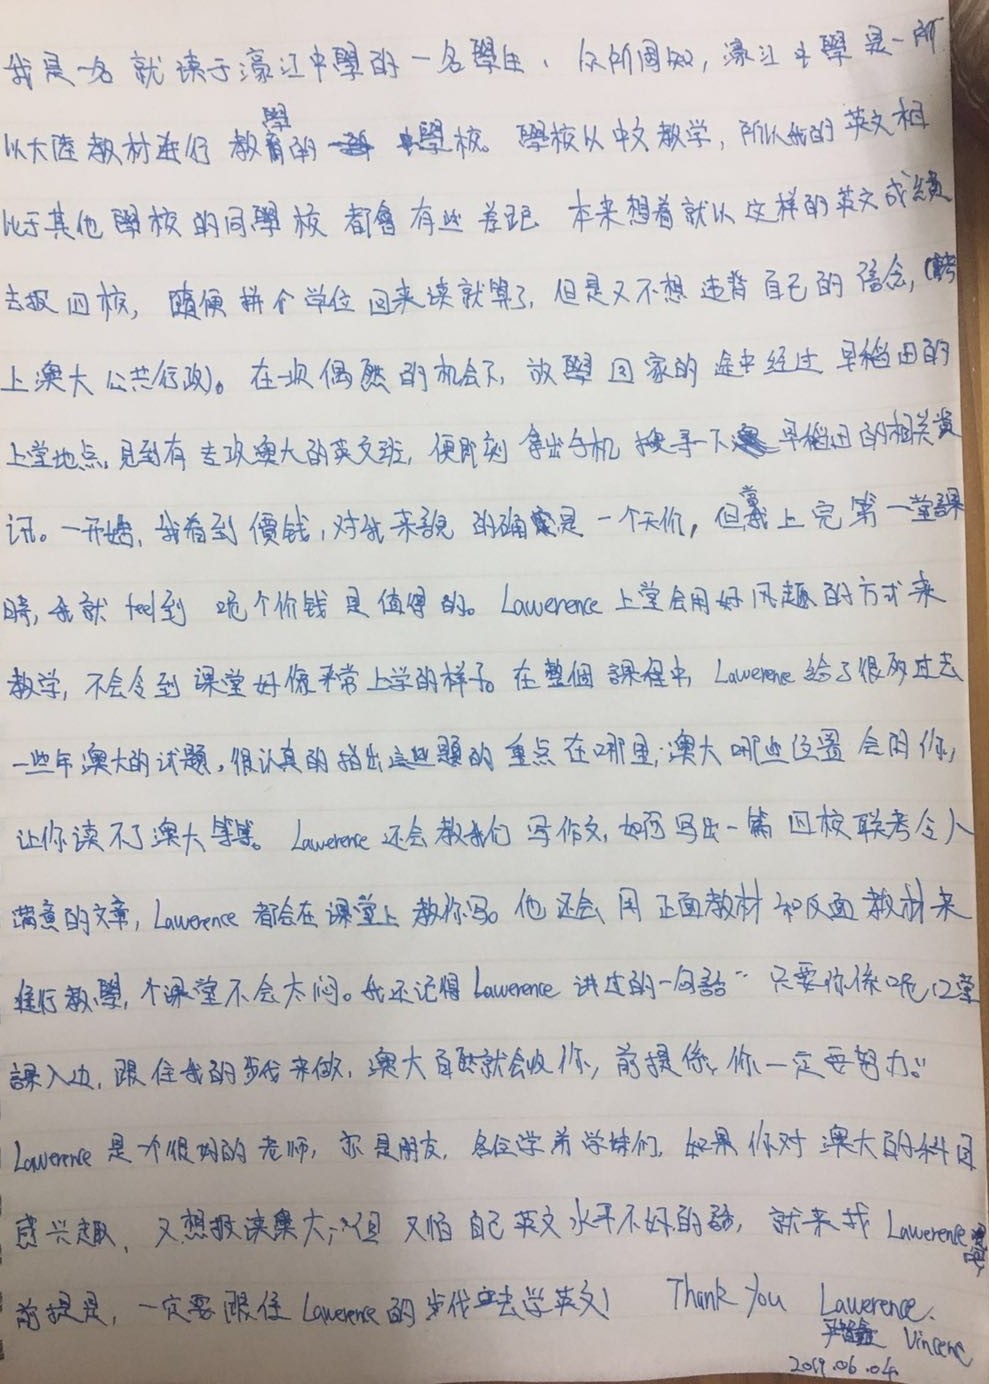 我是一名就读于濠江中學的一名學生、众所周知，濠江中學是一所
以大陸教材进行教學的學校。學校以中文教学，所以我的英文相
比于其他學校的同學校都會有些差距 本来想着就以这样的英文成績
去报四校，隨便拼个学位回来读就算了，但是又不想违背自己的信念，(
上澳大公共行政)。在一次偶然的机会下，放學回家的途中经过早稻田的
上堂地点，見到有专攻澳大的英文班，便即刻拿出手机搜寻一下早稻田的相关資
讯。一开始，我看到價钱，对我来説的确是一个天价，但當我上完第一堂課
時，我就feel到呢个价钱是值得的。Lawerence上堂会用好风趣的方式来
教学，不会令到课堂好像平常上学的样子。在整個課程中，Lawerence给了很多过去
一些年澳大的试题，很认真的指出這些題的重点在哪里，澳大哪些位置会阴你，
让你读不了澳大等等。Lawerence还会教我们写作文，如何写出一篇四校联考令人
满意的文章，Lawerence都会在课堂上教你写。他还会用正面教材和反面教材来
进行教學，个课堂不会太闷。我还记得Lawerence讲过的一句話“只要你係呢口堂
課入边，跟住我的步伐来做，澳大自然就会收你，前提係，你一定要努力。”
Lawerence是一个很好的老师，亦是朋友，各位学弟学妹们，如果你对澳大的科目
感兴趣，又想报读奥大，但又怕自己英文水平不好的話，就来找Lawerence
前提是，一定要跟住Lawerence的步伐去学英文！ Thank You Lawerence.
Vincent
2019.06.04